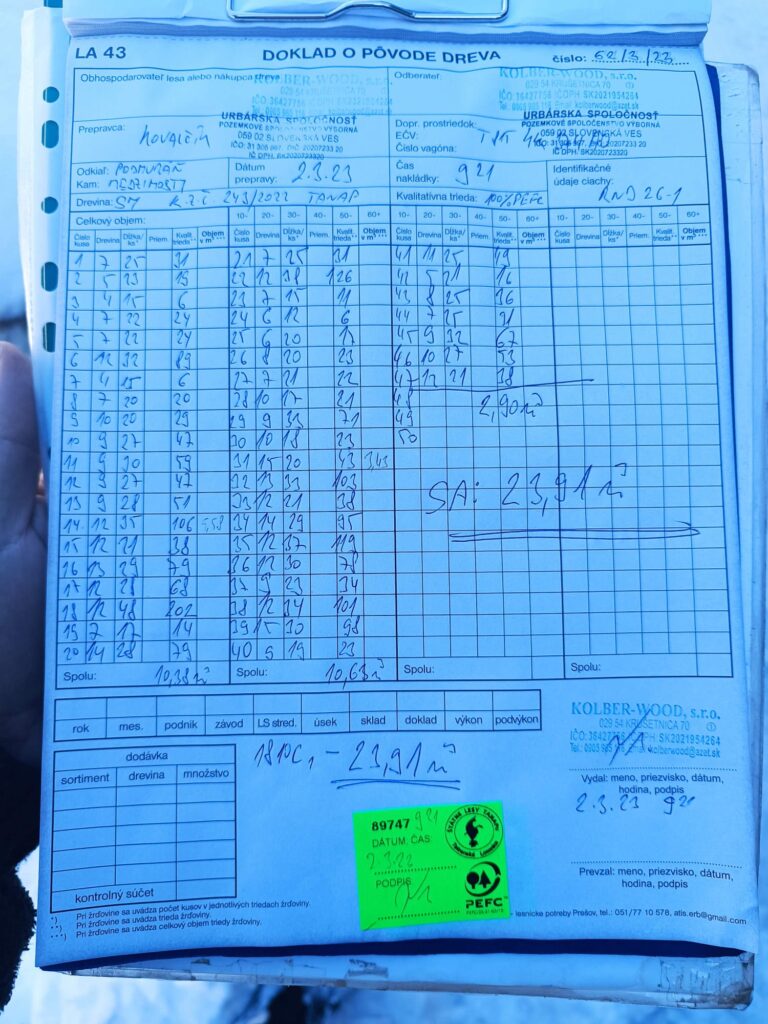 LA 43 DOKLAD O PÔVODE DREVA číslo: 62/3/23
Obhospodarovateľ lesa alebo nákupca dreva:
KOLBER-WOOD, s.r.o.
029 54 KRUŠETNICA 70
IČO 36427756 IČ DPH SK2021954264
URBÁRSKA SPOLOČNOSŤ
POZEMKOVÉ SPOLOČENSTVO VÝBORNÁ
059 02 SLOVENSKÁ VES
IČ DPH. SK2020723320
Odberateľ:
KOLBER-WOOD, s.r.o.
029 54 KRUŠETNICA 70
IČO 36427756 IČ DPH SK2021954264
URBÁRSKA SPOLOČNOSŤ
POZEMKOVÉ SPOLOČENSTVO VÝBORNÁ
059 02 SLOVENSKÁ VES
IČ DPH. SK2020723320
Prepravca:
Dopr. prostriedok:
EČV:
Číslo vagóna:
Odkiaľ: PODMURAŇ
Kam: MEDZIMOSTY
Dátum prepravy: 2.3.23
Čas nakládky: 9 21
Identifikačné údaje ciachy: RND 26-1
Drevina: SM R.Z.Č 243/2022 TANAP Kvalitatívna trieda: 100% PEFC
Celkový objem: 10- 20- 30- 40- 50- 60+ 10- 20- 30- 40- 50- 60+ 10- 20- 30- 40- 50- 60+ 10- 20- 30- 40- 50- 60+
Číslo kusa Drevina Dĺžka/ks* Priem. Kvalit. trieda** Objem v m³*** Číslo kusa Drevina Dĺžka/ks* Priem. Kvalit. trieda** Objem v m³*** Číslo kusa Drevina Dĺžka/ks* Priem. Kvalit. trieda** Objem v m³*** Číslo kusa Drevina Dĺžka/ks* Priem. Kvalit. trieda** Objem v m³***
1 7 25 31 21 7 25 31 41 11 25 49
2 5 23 19 22 12 38 126 42 5 21 16
3 4 15 6 23 7 15 11 43 8 25 36
4 7 22 24 24 6 12 6 44 7 25 31
5 7 22 24 25 6 20 17 45 9 32 67
6 12 32 89 26 8 20 23 46 10 27 53
7 4 15 6 27 7 21 22 47 12 21 38
8 7 20 20 28 10 17 21 48 2,90 m³
9 10 20 29 29 9 33 71 49
10 9 27 47 30 10 18 23 50
11 9 30 59 31 15 20 43 3,43
12 9 27 47 32 13 33 103
13 9 28 51 33 12 21 38 SA: 23,91 m³
14 12 35 106 5,58 34 14 29 95
15 12 21 38 35 12 37 119
16 13 29 79 36 12 30 78
17 12 28 68 37 9 23 34
18 12 48 202 38 12 34 101
19 7 17 14 39 15 30 98
20 14 28 79 40 9 19 23
Spolu: 10,38 m³ Spolu: 10,63 m³ Spolu: Spolu:
rok mes. podnik závod LS stred. úsek sklad doklad výkon podvýkon
KOLBER-WOOD, s.r.o.
029 54 KRUŠETNICA 70
IČO: 36427756 IČ DPH: SK2021954264
kolberwood@azet.sk
dodávka
sortiment drevina množstvo
kontrolný súčet
- 23,91 m³
Vydal: meno, priezvisko, dátum,
hodina, podpis
2.3.23 9 21
89747 9 21
DÁTUM, ČAS
PODPIS
ŠTÁTNE LESY TANAPU
PEFC
Prevzal: meno, priezvisko, dátum,
hodina, podpis
*) Pri žrďovine sa uvádza počet kusov v jednotlivých triedach žrďoviny.
**) Pri žrďovine sa uvádza trieda žrďoviny.
***) Pri žrďovine sa uvádza celkový objem triedy žrďoviny.
- lesnícke potreby Prešov, tel.: 051/77 10 578, atis.erb@gmail.com